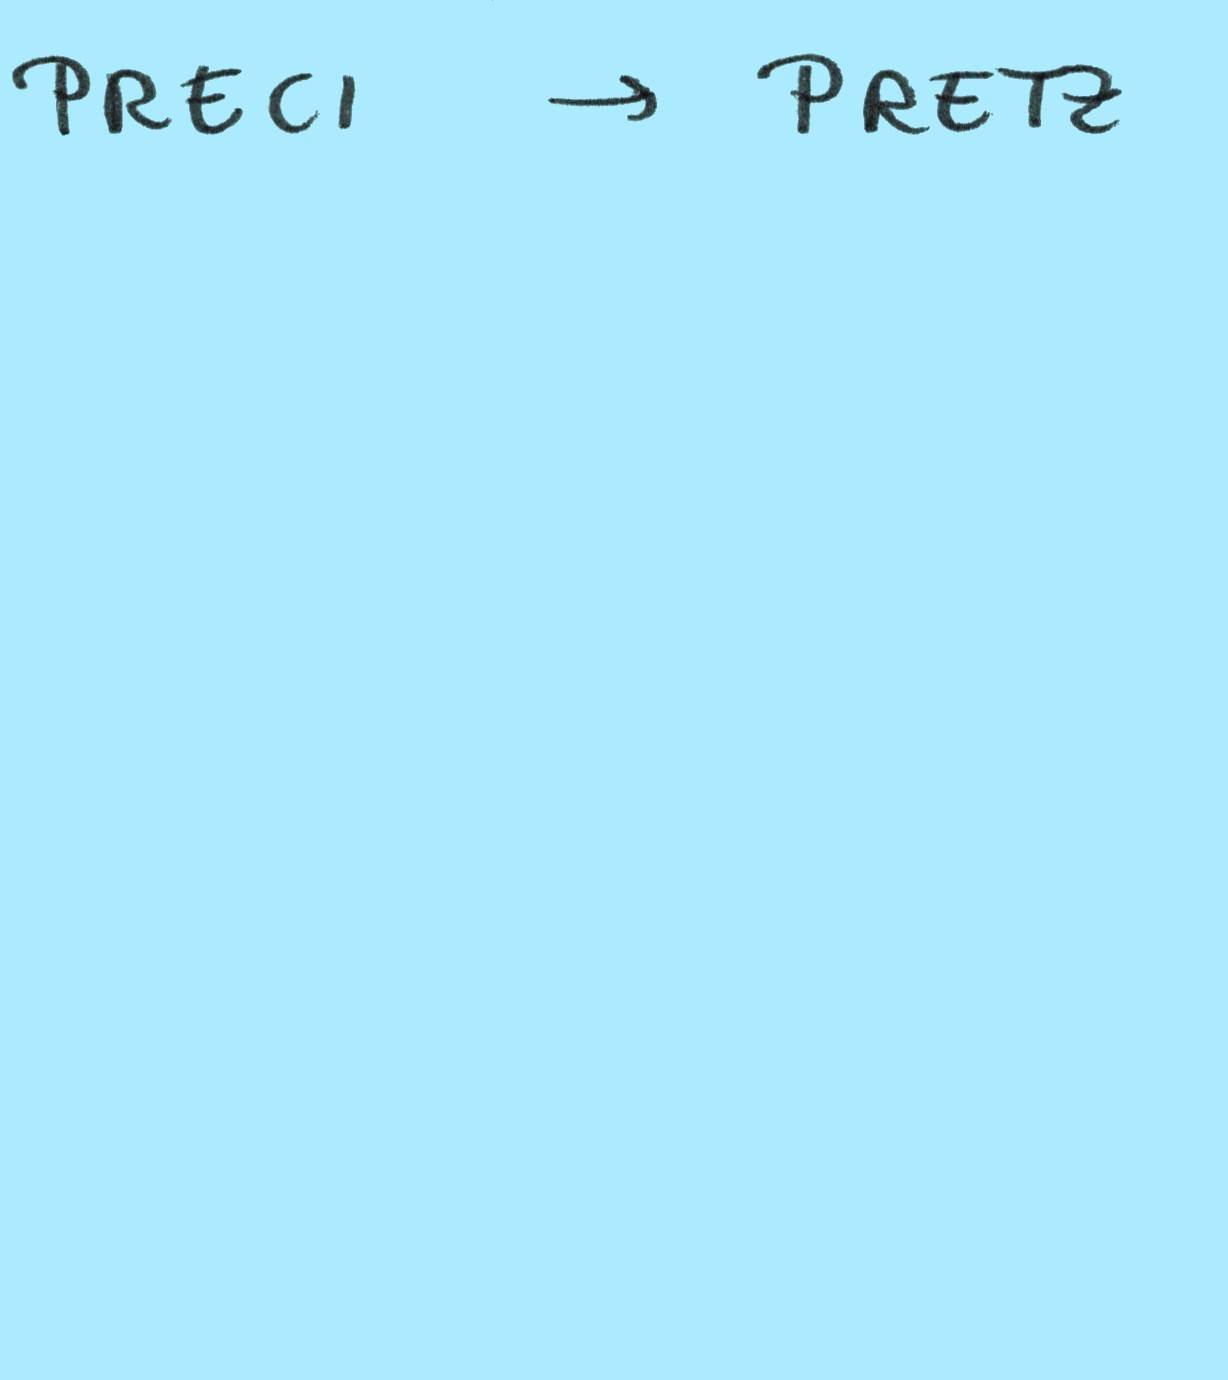 PRECI → PRETZ